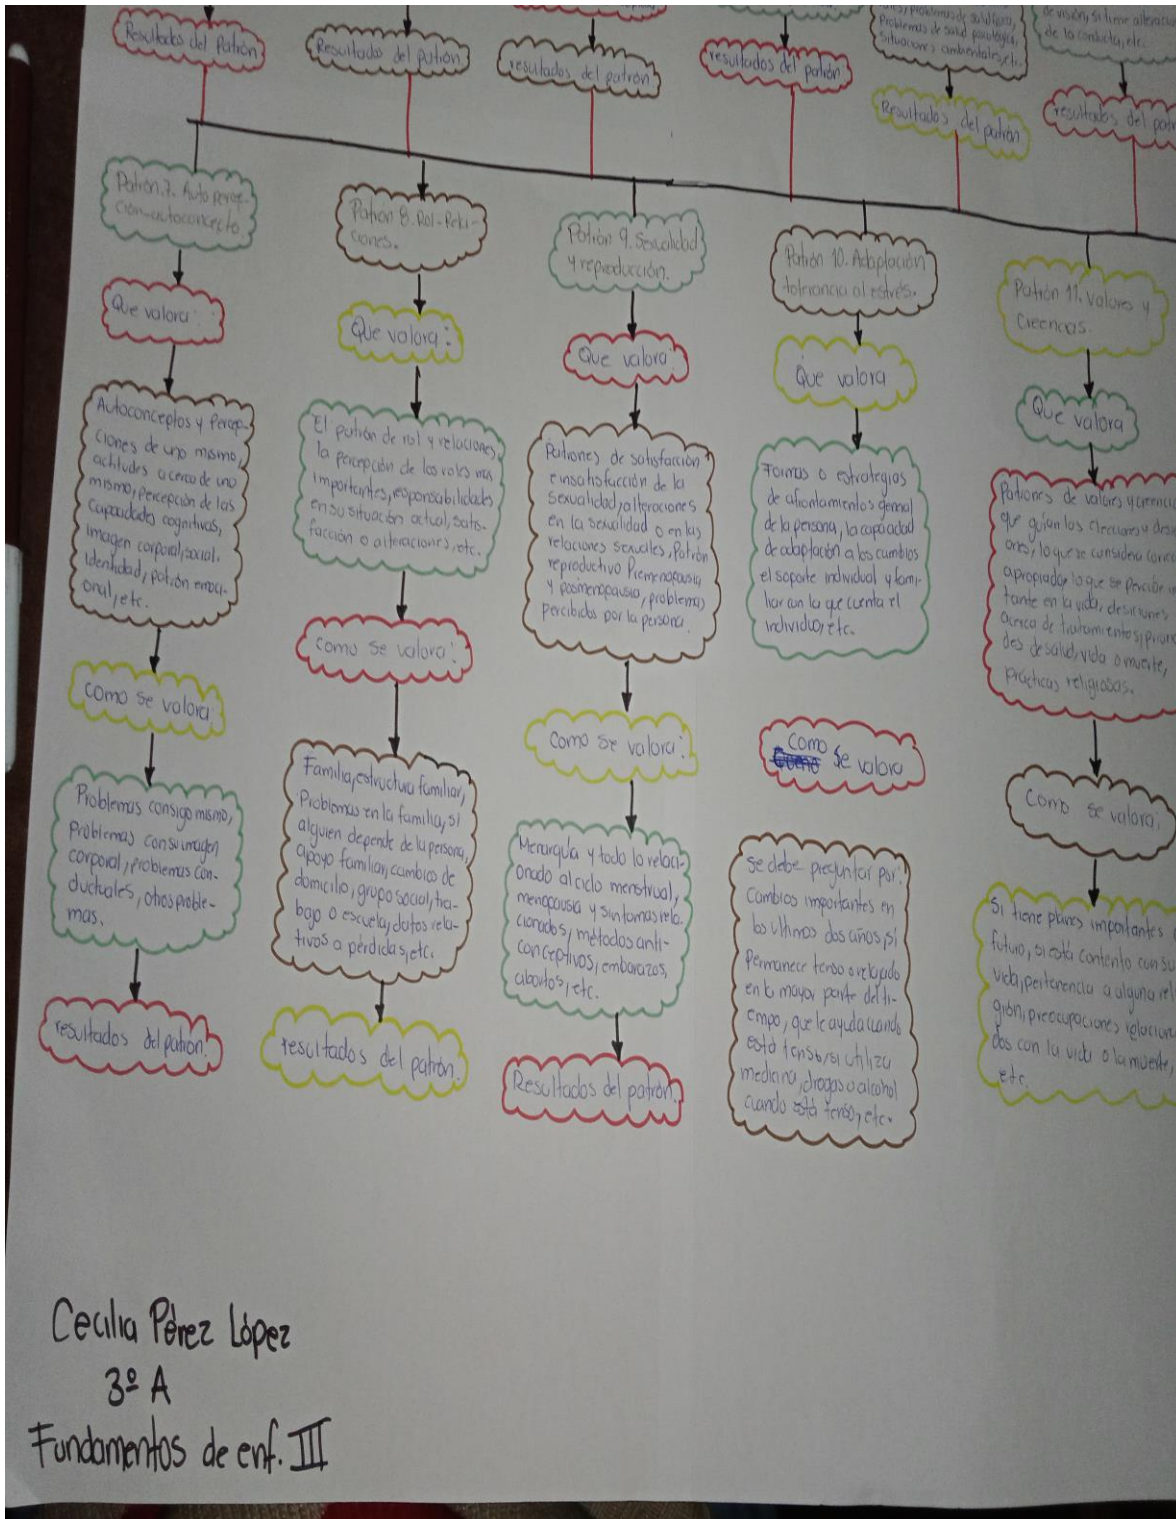 Resultados del Patrón
Resultados del patrón
resultados del patrón
resultados del patrón
Problemas de salud
situaciones ambientales, etc.
Resultados del patrón
de visión, si tiene
de la conducta, etc.
resultados del
Patrón.7. Autopercep-
ción-autoconcepto
Que valora:
Autoconceptos y Percep-
ciones de uno mismo,
actitudes acerca de uno
mismo, percepción de las
Capacidades cognitivas,
imagen corporal, social.
identidad, patrón emoci-
onal, etc.
como se valora:
Problemas consigo mismo,
problemas con su imagen
corporal, problemas con-
ductuales, otros proble-
mas.
resultados del patrón.
Patrón 8. Rol-Rela-
ciones.
Que valora:
El patrón de rol y relaciones,
la percepción de los roles más
importantes, responsabilidades
en su situación actual, satis-
facción o alteraciones, etc.
como se valora:
Familia, estructura familiar,
Problemas en la familia, si
alguien depende de la persona,
apoyo familiar, cambios de
domicilio, grupo social, tra-
bajo o escuela, datos rela-
tivos a pérdidas, etc.
resultados del patrón.
Patrón 9. Sexualidad
y reproducción.
Que valora:
Patrones de satisfacción
e insatisfacción de la
sexualidad, alteraciones
en la sexualidad o en las
relaciones sexuales, Patrón
reproductivo Premenopausia
y posmenopausia, problemas
percibidos por la persona.
como se valora:
Menarquía y todo lo relaci-
onado al ciclo menstrual,
menopausia y síntomas rela-
cionados, métodos anti-
conceptivos, embarazos,
abortos, etc.
Resultados del patrón.
Patrón 10. Adaptación
tolerancia al estrés.
Que valora
Formas o estrategias
de afrontamientos general
de la persona, la capacidad
de adaptación a los cambios
el soporte individual y fami-
liar con la que cuenta el
individuo, etc.
como
se valora
se debe preguntar por:
Cambios importantes en
los ultimos dos años, si
permanece tenso o relajado
en la mayor parte del ti-
empo, que le ayuda cuando
está tenso, si utiliza
medicina, drogas o alcohol
cuando está tenso, etc.
Patrón 11. Valores y
Creencias.
Que valora
Patrones de valores y
que guían las elecciones y
lo que se considera
apropiado, lo que se percibe
en la vida, desiciones
acerca de tratamientos,
des de salud, vida o muerte,
prácticas religiosas.
Como se valora:
Si tiene planes importantes
futuro, si está contento con su
vida, pertenencia a alguna
gión, preocupaciones
dos con la vida o la muerte,
etc.
Cecilia Pérez López
3º A
Fundamentos de enf. III